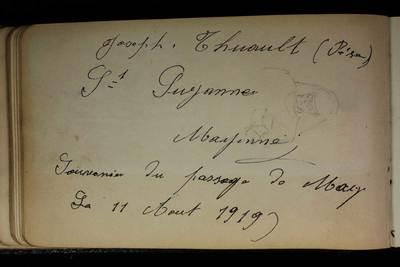 Joseph. Thuault (
St Suzanne
Mayenne
Souvenir du passage de May
La 11 Aout 1919